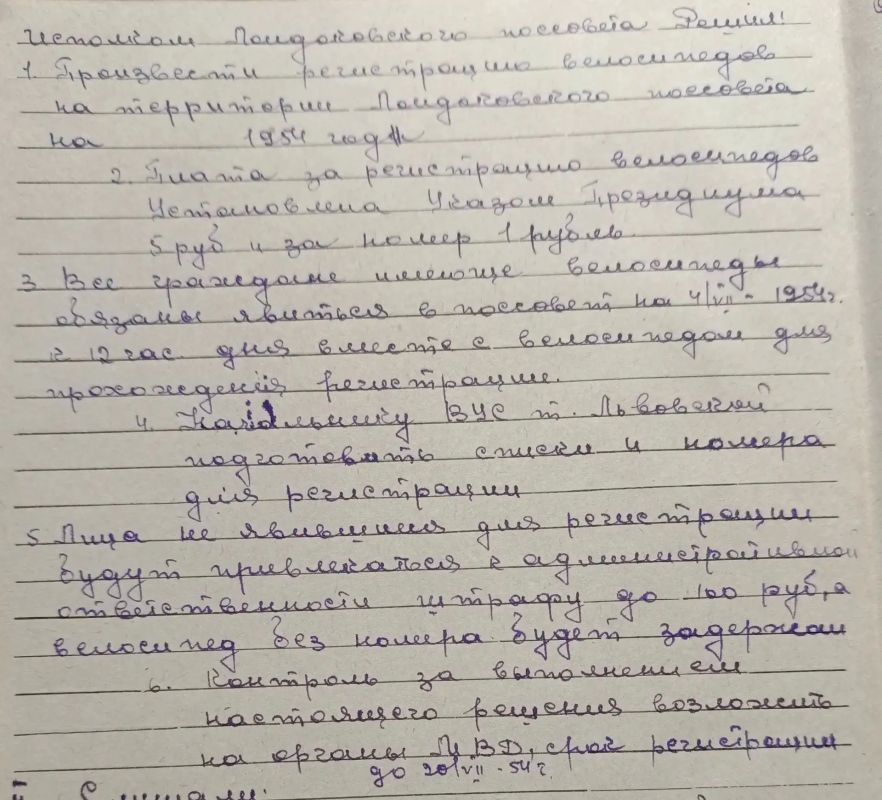 исполком Пондоковского поссовета Решил:
1. Произвести регистрацию велосипедов
на территории Пондоковского поссовета
на 1954 год
2. Плата за регистрацию велосипедов
Установлена Указом Президиума
5 руб и за номер 1 рубль.
3 Все граждане имеюще велосипеды
обязаны явиться в поссовет на 4/VII - 1954г.
к 12 час. дня вместе с велосипедом для
прохождения регистрации.
4. Начальнику ВУС т. Львовской
подготовить списки и номера
для регистрации
5 Лица не явившиися для регистрации
будут привлекаться к административной
ответственности штрафу до 100 руб, а
велосипед без номера будет задержан
6. Контроль за выполнением
настоящего решения возложить
на органы МВД, срок регистрации
до 20/VII - 54 г.